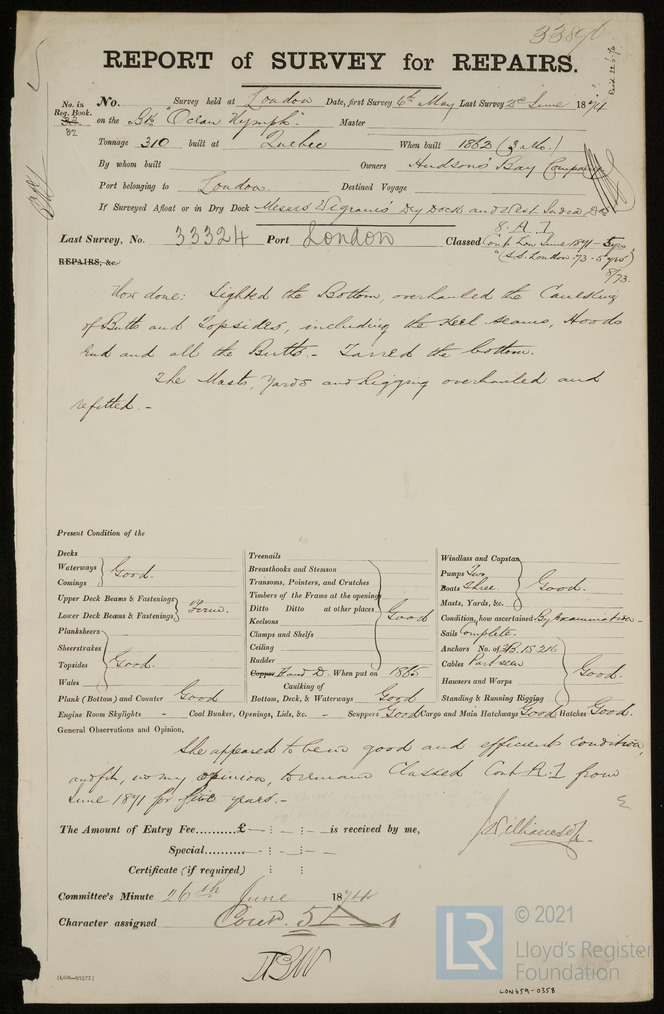 REPORT of SURVEY for REPAIRS.
No. in Reg. Book.
32
No. Survey held at London Date, first Survey 6th May Last Survey 2d June 1874
on the Bk "Ocean Nymph" Master
Tonnage 310 built at Quebec When built 1862 (3 Mo.)
By whom built Owners Hudson's Bay Company
Port belonging to London Destined Voyage
If Surveyed Afloat or in Dry Dock Messrs Wigrams' Dry Dock and West India Do
Last Survey, No. 33324 Port London Classed 8. A. 1
Cont. Lon. June 1871 - 5 yrs
(S.S. London 73 - 5 yrs)
8/73.
REPAIRS, &c.
How done: Sighted the Bottom, overhauled the Caulking
of Butts and Topsides, including the Keel seams, Hoods
End and all the Butts. - Tarred the bottom.
The Masts, Yards and Rigging overhauled and
refitted. -
Present Condition of the
Decks
Waterways
Comings
Good.
Upper Deck Beams & Fastenings
Lower Deck Beams & Fastenings
Firm.
Planksheers
Sheerstrakes
Topsides
Wales
Good.
Plank (Bottom) and Counter Good
Treenails
Breasthooks and Stemson
Transoms, Pointers, and Crutches
Timbers of the Frame at the openings
Ditto Ditto at other places
Keelsons
Clamps and Shelfs
Ceiling
Rudder
Good
Copper When put on 1865
Caulking of
Bottom, Deck, & Waterways Good
Windlass and Capstan
Pumps Two
Boats Three
Masts, Yards, &c.
Good.
Condition, how ascertained By Examination
Sails Complete.
Anchors No. of 3B. 1S. 2K
Cables Part seen
Hawsers and Warps
Standing & Running Rigging
Good.
Engine Room Skylights - Coal Bunker, Openings, Lids, &c. - Scuppers Good Cargo and Main Hatchways Good Hatches Good.
General Observations and Opinion,
She appeared to be in good and efficient condition,
and fit, in my opinion, to remain Classed Cont A. 1 from
June 1871 for five years. -
The Amount of Entry Fee..........£ - : - : - is received by me,
Special.......... - : - : -
Certificate (if required) : :
Committee's Minute 26th June 1874
Character assigned Contd. 5 A 1
© 2021
LR
Lloyd's Register
Foundation
LON659-0358